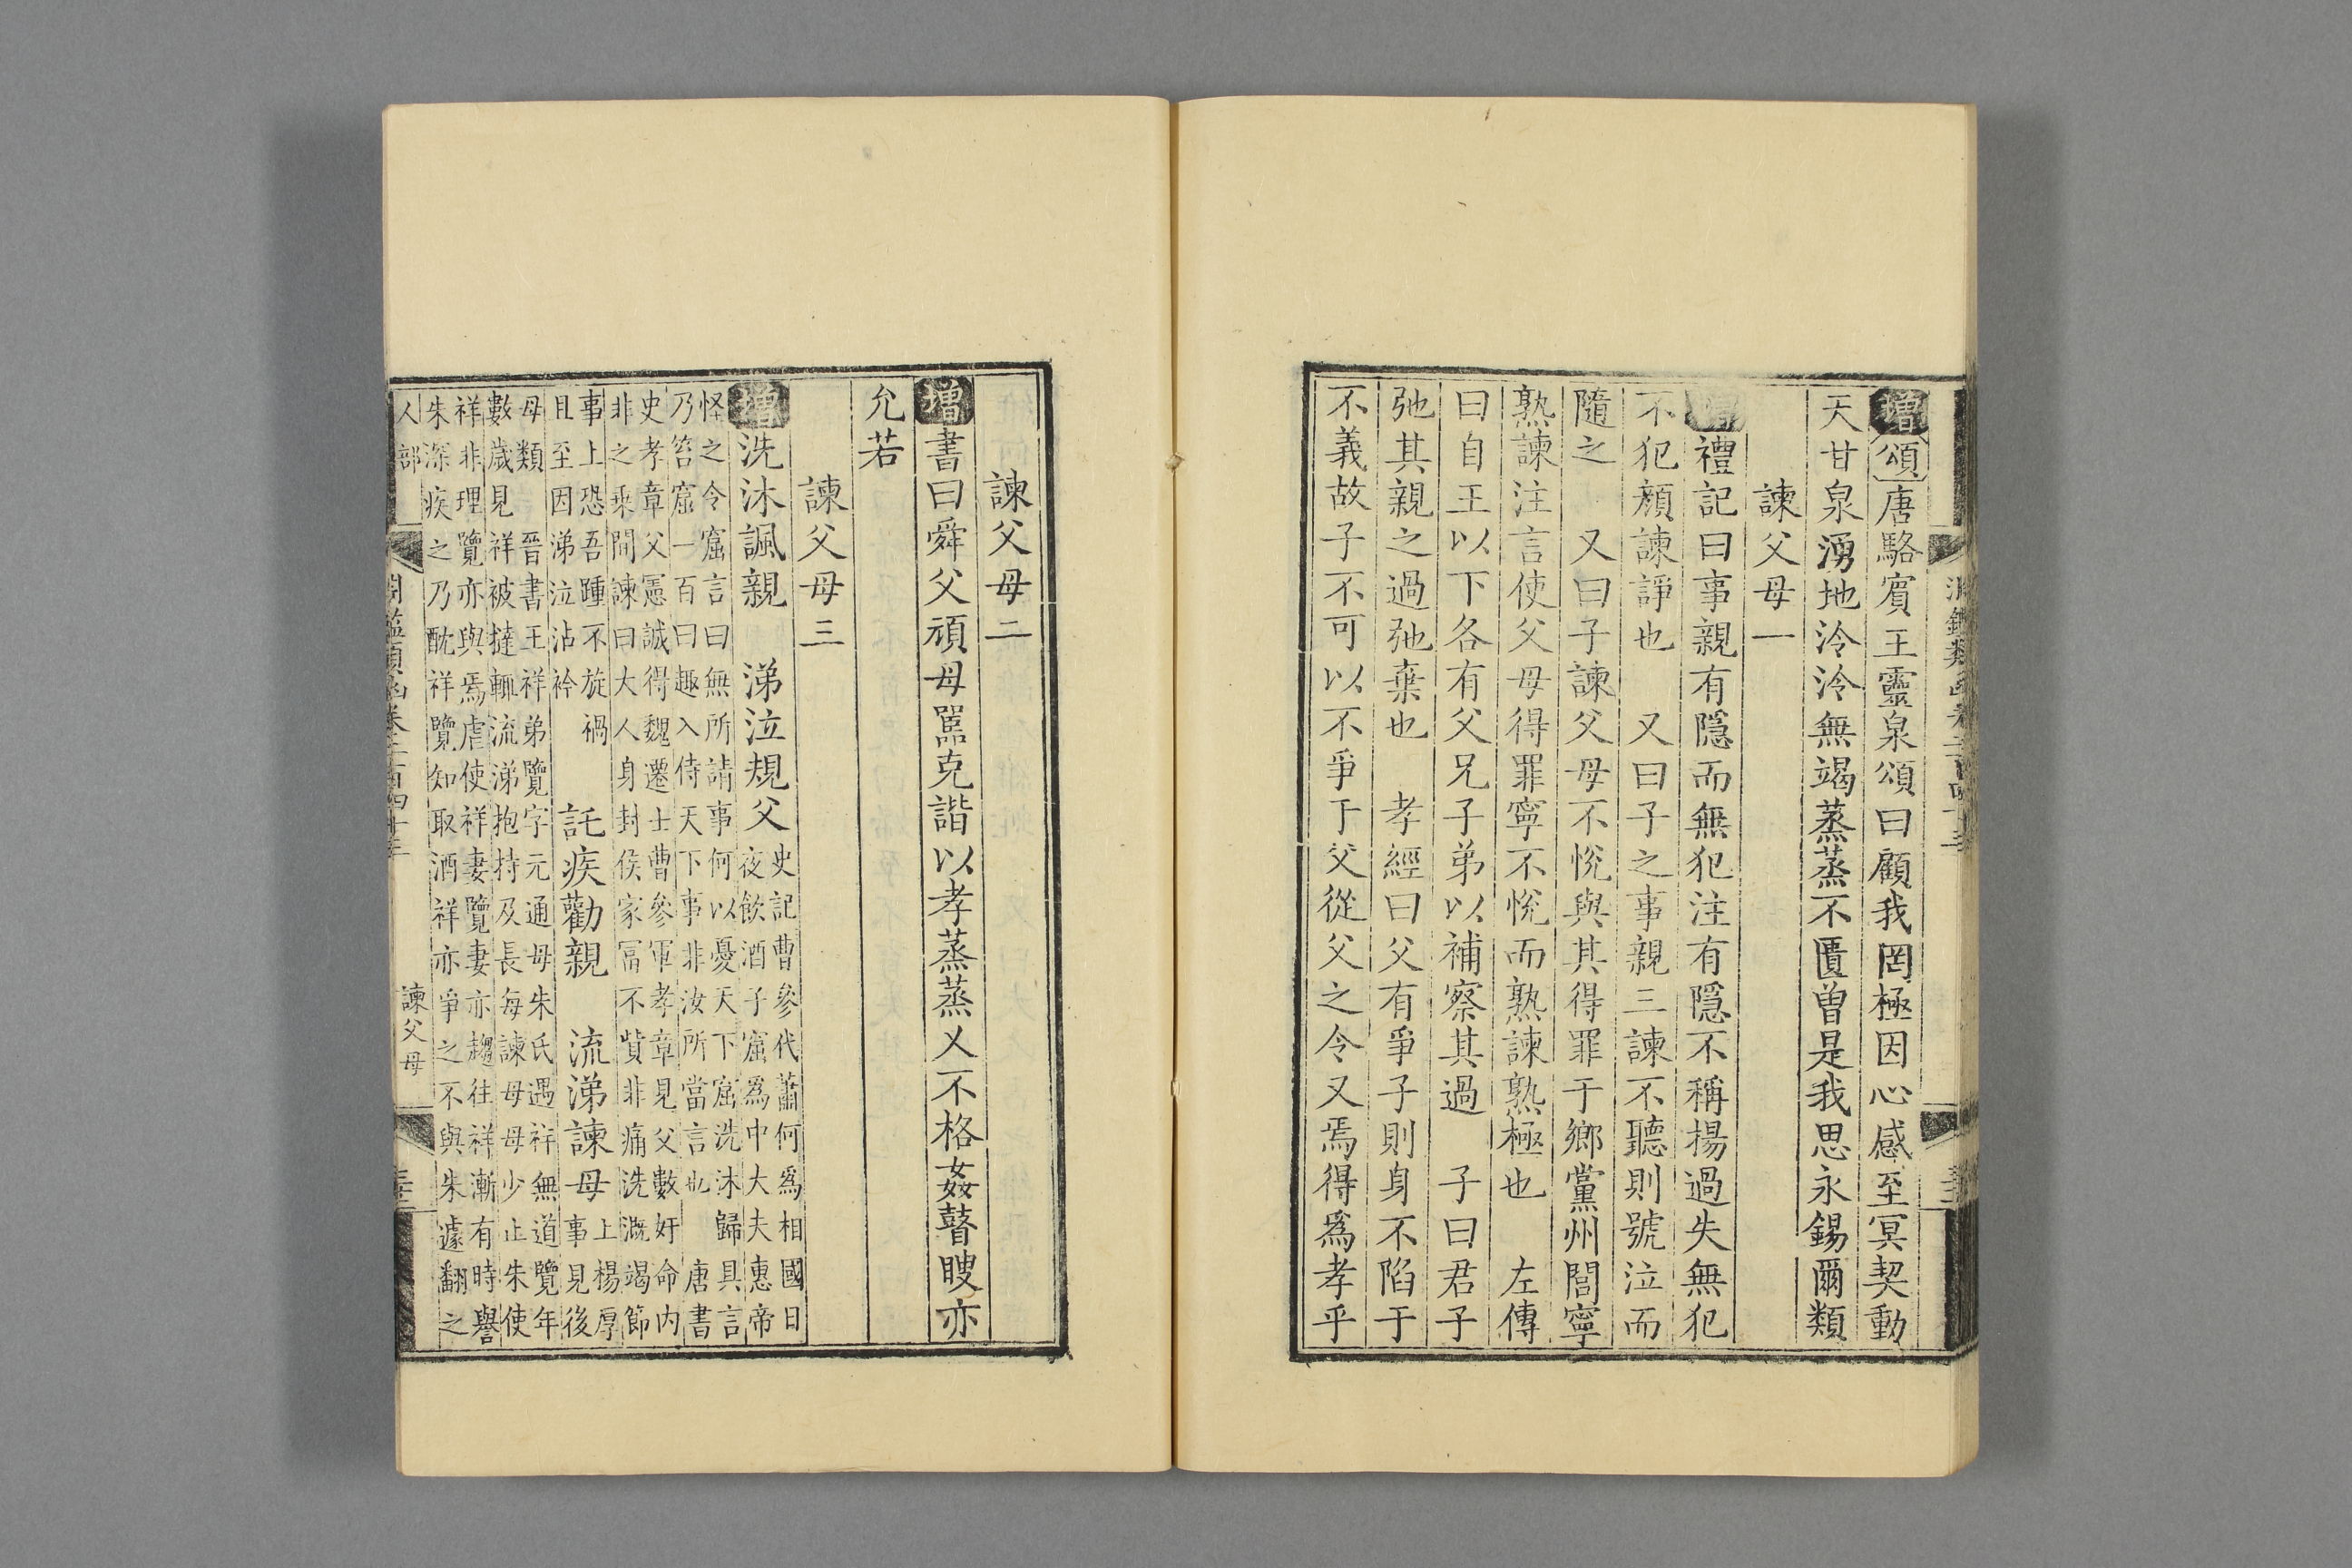 淵鑑類函卷二百四十
增頌唐駱賓王靈泉頌曰顧我罔極因心感至冥契動
天甘泉湧地泠泠無竭蒸蒸不匱曾是我思永錫爾類
諫父母一
增禮記曰事親有隱而無犯注有隱不稱揚過失無犯
不犯顏諫諍也　又曰子之事親三諫不聽則號泣而
隨之　又曰子諫父母不悅與其得罪于鄉黨州閭寧
熟諫注言使父母得罪寧不悅而熟諫熟極也　左傳
曰自王以下各有父兄子弟以補察其過　子曰君子
弛其親之過弛棄也　孝經曰父有爭子則身不陷于
不義故子不可以不爭于父從父之令又焉得爲孝乎
諫父母二
增書曰舜父頑母嚚克諧以孝蒸蒸乂不格姦瞽瞍亦
允若
諫父母三
增洗沐諷親　涕泣規父
史記曹參代蕭何爲相國日
夜飲酒子窋爲中大夫惠帝
怪之令窋言曰無所請事何以憂天下窋洗沐歸具言
乃笞窋一百曰趣入侍天下事非汝所當言也　唐書
史孝章父憲誠得魏遷士曹參軍孝章見父數奸命内
非之乘間諫曰大人身封侯家富不貲非痛洗溉竭節
事上恐吾踵不旋禍
且至因涕泣沾衿
託疾勸親　流涕諫母
上楊厚
事見後
母類　晉書王祥弟覽字元通母朱氏遇祥無道覽年
數歲見祥被撻輒流涕抱持及長每諫母母少止朱使
祥非理覽亦與焉虐使祥妻覽妻亦趨往祥漸有時譽
朱深疾之乃酖祥覽知取酒祥亦爭之不與朱遽翻之
人部　淵鑑類函卷二百四十　諫父母